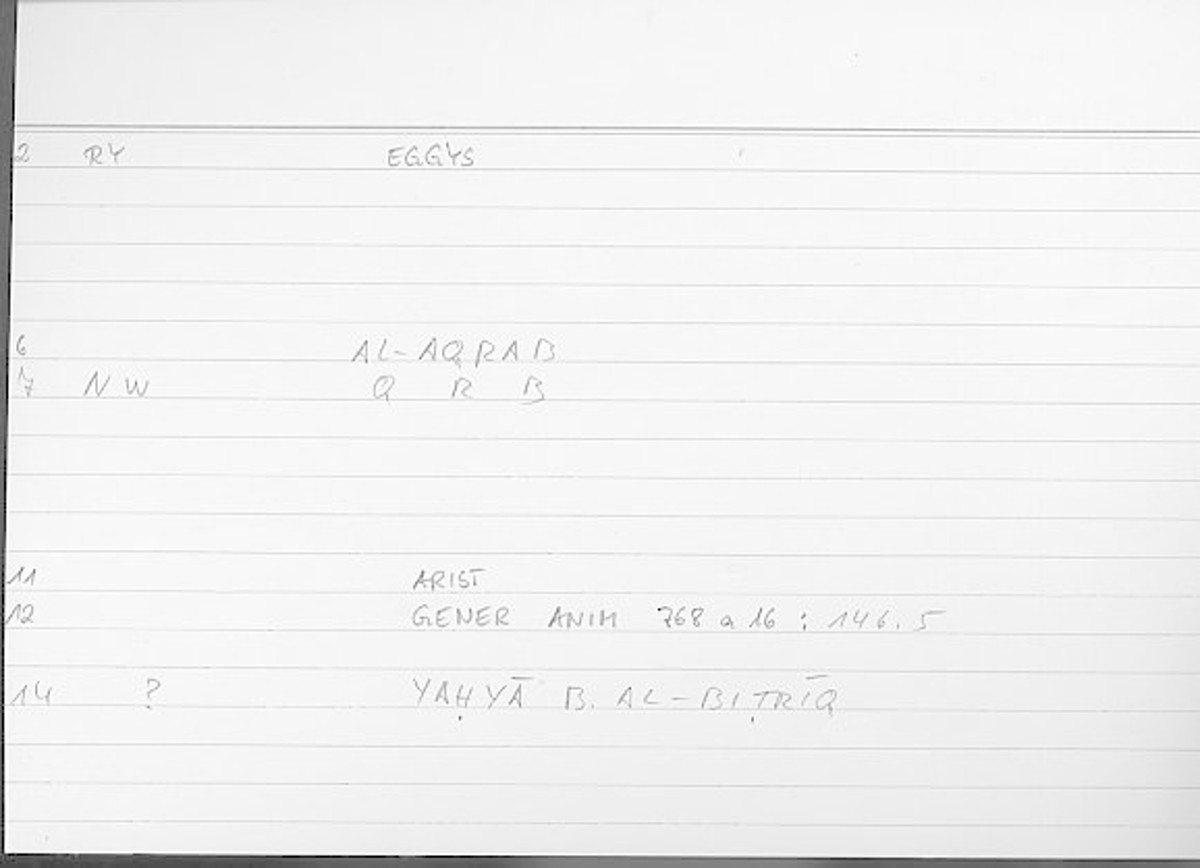 2 RY EGGYS
6 AL-AQRAB
7 NW Q R B
11 ARIST
12 GENER ANIM 768 a 16 : 146.5
14 ? YAḤYĀ B. AL-BIṬRĪQ